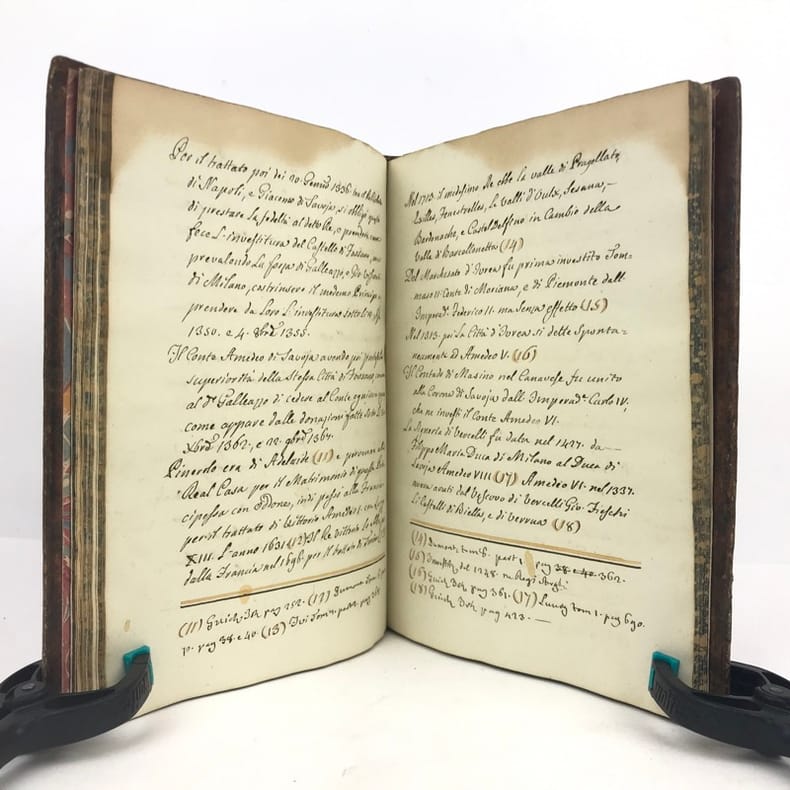 Per il trattato poi dei 20. Genn.o 1336. tra
di Napoli, e Giacomo di Savoja, si obligò questo
di prestare la fedeltà al detto Re, e prendere come
fece L'investitura del Castello di Fossano, mà
prevalendo La forza di Galleazzo, e
di Milano, costrinsere il medemo Principe a
prendere da Loro L'investitura sotto li
1350. e 4. 8bre 1355.
Il Conte Amedeo di Savoja avendo poi
superiorità della Stessa Città di Fossano,
al d.o Galleazzo di cedere al Conte ogni
come appare dalle donazioni fatte sotto li
Xbre 1362., e 22. 9bre 1367.
Pinerolo era di Adelaide (11) e pervenne alla
Real Casa per il Matrimonio di questa Prin-
cipessa con Oddone, indi passò alla Francia
per il trattato di Vittorio Amedeo I. con Luigi
XIII. L'anno 1631 (12) Il Re Vittorio lo
dalla Francia nel 1696. per il trattato di Torino
(11) Guich. Zoh pag 252. (12) Dumont tom. 6.
p. pag 38. e 40. (13) Ivi Tom. 7. part. 2 pag 368
Nel 1713. il medesimo Re ebbe la valle di Pragellato,
Exilles, Fenestrelles, le Valli d'Oulx, Sesana,-
Bardonache, e Castel Delfino in Cambio della
Valle di Barcellonetta (14)
Del Marchesato d'Ivrea fu prima investito Tom-
maso II. Conte di Moriana, e di Piemonte dall'
Imperad.e Federico II. ma senza effetto (15)
Nel 1313. poi La Città d'Ivrea si dette Sponta-
neamente ad Amedeo V. (16)
Il Contado di Masino nel Canavese fu unito
alla Corona di Savoja dall'Imperad.e Carlo IV,
che ne investì il Conte Amedeo VI.
La Signoria di Vercelli fu data nel 1427. da-
Filippo Maria Duca di Milano al Duca di
Savoja Amedeo VIII (17) Amedeo VI. nel 1337.
aveva avuti dal Vescovo di Vercelli Gio. Freschi
Li Castelli di Biella, e di Verrua (18)
(14) Dumont tom. 8. part. 1 pag 38 e 40 362.
(15) del 1248. ne Regi Argh.
(16) Guich. Zoh pag 361. (17) Lunig tom 1. pag 690.
(18) Guich. Zoh pag 423.-